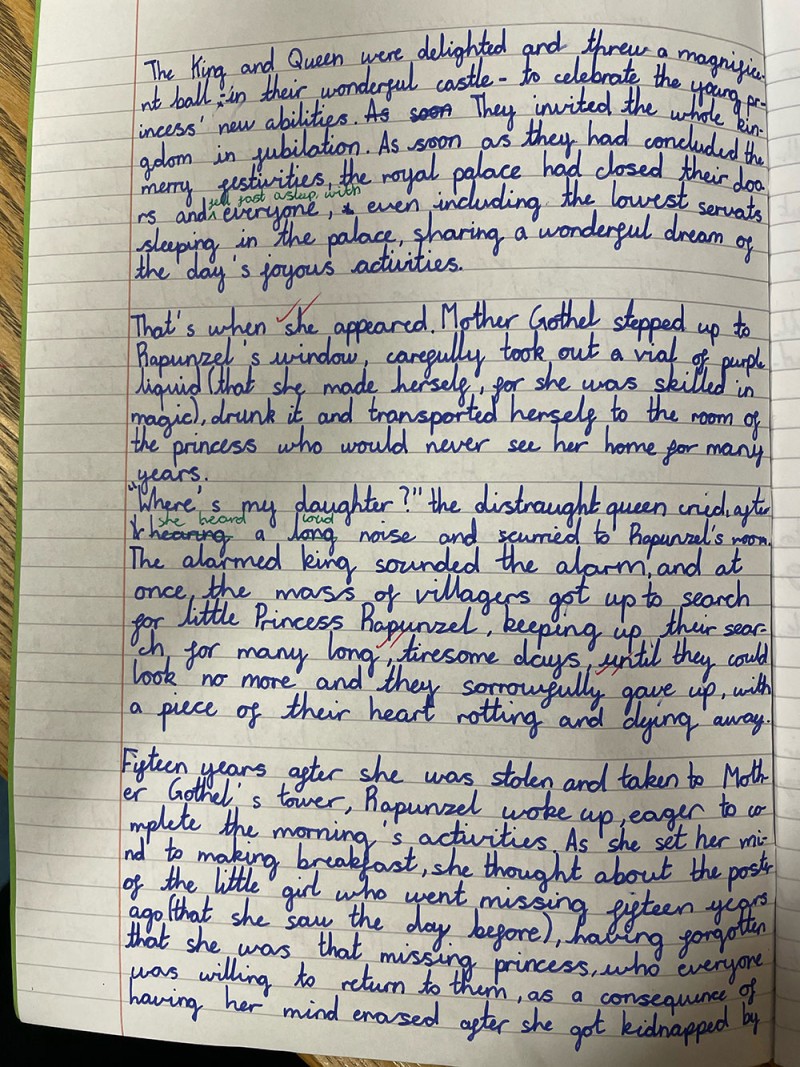 The King and Queen were delighted and threw a magnifice-
nt ball, in their wonderful castle - to celebrate the young pr-
incess' new abilities. As soon They invited the whole kin-
gdom in jubilation. As soon as they had concluded the
merry festivities, the royal palace had closed their doo
rs and fell fast asleep with everyone, even including the lowest servats
sleeping in the palace, sharing a wonderful dream of
the day's joyous activities.
That's when she appeared. Mother Gothel stepped up to
Rapunzel's window, carefully took out a vial of purple
liquid (that she made herself, for she was skilled in
magic), drunk it and transported herself to the room of
the princess who would never see her home for many
years.
"Where's my daughter?" the distraught queen cried, after
hearing she heard a long loud noise and scurried to Rapunzel's room.
The alarmed king sounded the alarm, and at
once, the mass of villagers got up to search
for little Princess Rapunzel, keeping up their sear-
ch for many long, tiresome days, until they could
look no more and they sorrowfully gave up, with
a piece of their heart rotting and dying away.
Fifteen years after she was stolen and taken to Moth-
er Gothel's tower, Rapunzel woke up, eager to co
mplete the morning's activities. As she set her mi-
nd to making breakfast, she thought about the poster
of the little girl who went missing fifteen years
ago (that she saw the day before), having forgotten
that she was that missing princess, who everyone
was willing to return to them, as a consequence of
having her mind erased after she got kidnapped by